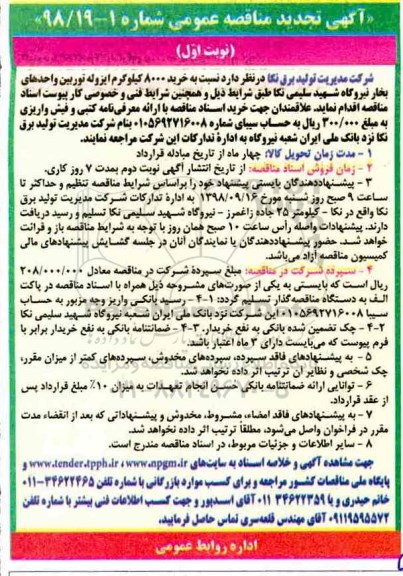 «آگهی تجدید مناقصه عمومی شماره ۱-۹۸/۱۹»
(نوبت اوّل)
شرکت مدیریت تولید برق نکا درنظر دارد نسبت به خرید ۸۰۰۰ کیلوگرم ایزوله توربین واحدهای
بخار نیروگاه شهید سلیمی نکا طبق شرایط ذیل و همچنین شرایط فنی و خصوصی کار پیوست اسناد
مناقصه اقدام نماید. علاقمندان جهت خرید اسناد مناقصه با ارائه معرفی‌نامه کتبی و فیش واریزی
به مبلغ ۳۰۰/۰۰۰ ریال به حساب سیبای شماره ۰۱۰۵۶۹۲۷۱۶۰۰۸ بنام شرکت مدیریت تولید برق
نکا نزد بانک ملی ایران شعبه نیروگاه به ادارۀ تدارکات این شرکت مراجعه نمایند.
۱ - مدت زمان تحویل کالا: چهار ماه از تاریخ مبادله قرارداد
۲ - زمان فروش اسناد مناقصه: از تاریخ انتشار آگهی نوبت دوم بمدت ۷ روز کاری.
۳ - پیشنهاددهندگان بایستی پیشنهاد خود را براساس شرایط مناقصه تنظیم و حداکثر تا
ساعت ۹ صبح روز شنبه مورخ ۱۳۹۸/۰۹/۱۶ به ادارۀ تدارکات شرکت مدیریت تولید برق
نکا واقع در نکا - کیلومتر ۲۵ جاده زاغمرز - نیروگاه شهید سلیمی نکا تسلیم و رسید دریافت
دارند. پیشنهادات واصله رأس ساعت ۱۰ صبح همان روز با توجه به شرایط مناقصه باز و قرائت
خواهد شد. حضور پیشنهاددهندگان یا نمایندگان آنان در جلسه گشایش پیشنهادهای مالی
کمیسیون مناقصه آزاد می‌باشد.
۴ - سپرده شرکت در مناقصه: مبلغ سپردۀ شرکت در مناقصه معادل ۲۰۸/۰۰۰/۰۰۰
ریال است که بایستی به یکی از صورت‌های مشروحه ذیل همراه با اسناد مناقصه در پاکت
الف به دستگاه مناقصه‌گذار تسلیم گردد: ۱-۴ - رسید بانکی واریز وجه مزبور به حساب
سیبا ۰۱۰۵۶۹۲۷۱۶۰۰۸ این شرکت نزد بانک ملی ایران شعبه نیروگاه شهید سلیمی نکا
۲-۴ - چک تضمین شده بانکی به نفع خریدار. ۳-۴ - ضمانتنامه بانکی به نفع خریدار برابر با
فرم پیوست که می‌بایست دارای ۳ ماه اعتبار باشد.
۵ - به پیشنهادهای فاقد سپرده، سپرده‌های مخدوش، سپرده‌های کمتر از میزان مقرر،
چک شخصی و نظایر آن ترتیب اثر داده نخواهد شد.
۶ - توانایی ارائه ضمانتنامه بانکی حسن انجام تعهدات به میزان ۱۰٪ مبلغ قرارداد پس
از عقد قرارداد.
۷ - به پیشنهادهای فاقد امضاء، مشروط، مخدوش و پیشنهاداتی که بعد از انقضاء مدت
مقرر در فراخوان واصل می‌شود، مطلقاً ترتیب اثر داده نخواهد شد.
۸ - سایر اطلاعات و جزئیات مربوط، در اسناد مناقصه مندرج است.
جهت مشاهده آگهی و خلاصه اسناد به سایت‌های www.npgm.ir، www.tender.tpph.ir و
پایگاه ملی مناقصات کشور مراجعه و برای کسب موارد بازرگانی با شماره تلفن ۳۴۶۲۲۴۶۵-۰۱۱
خانم حیدری و یا ۳۴۶۲۲۳۵۹ ۰۱۱ آقای اسدپور و جهت کسب اطلاعات فنی بیشتر با شماره تلفن
۰۹۱۱۹۵۹۵۵۷۲ آقای مهندس قلعه‌سری تماس حاصل فرمایید.
اداره روابط عمومی